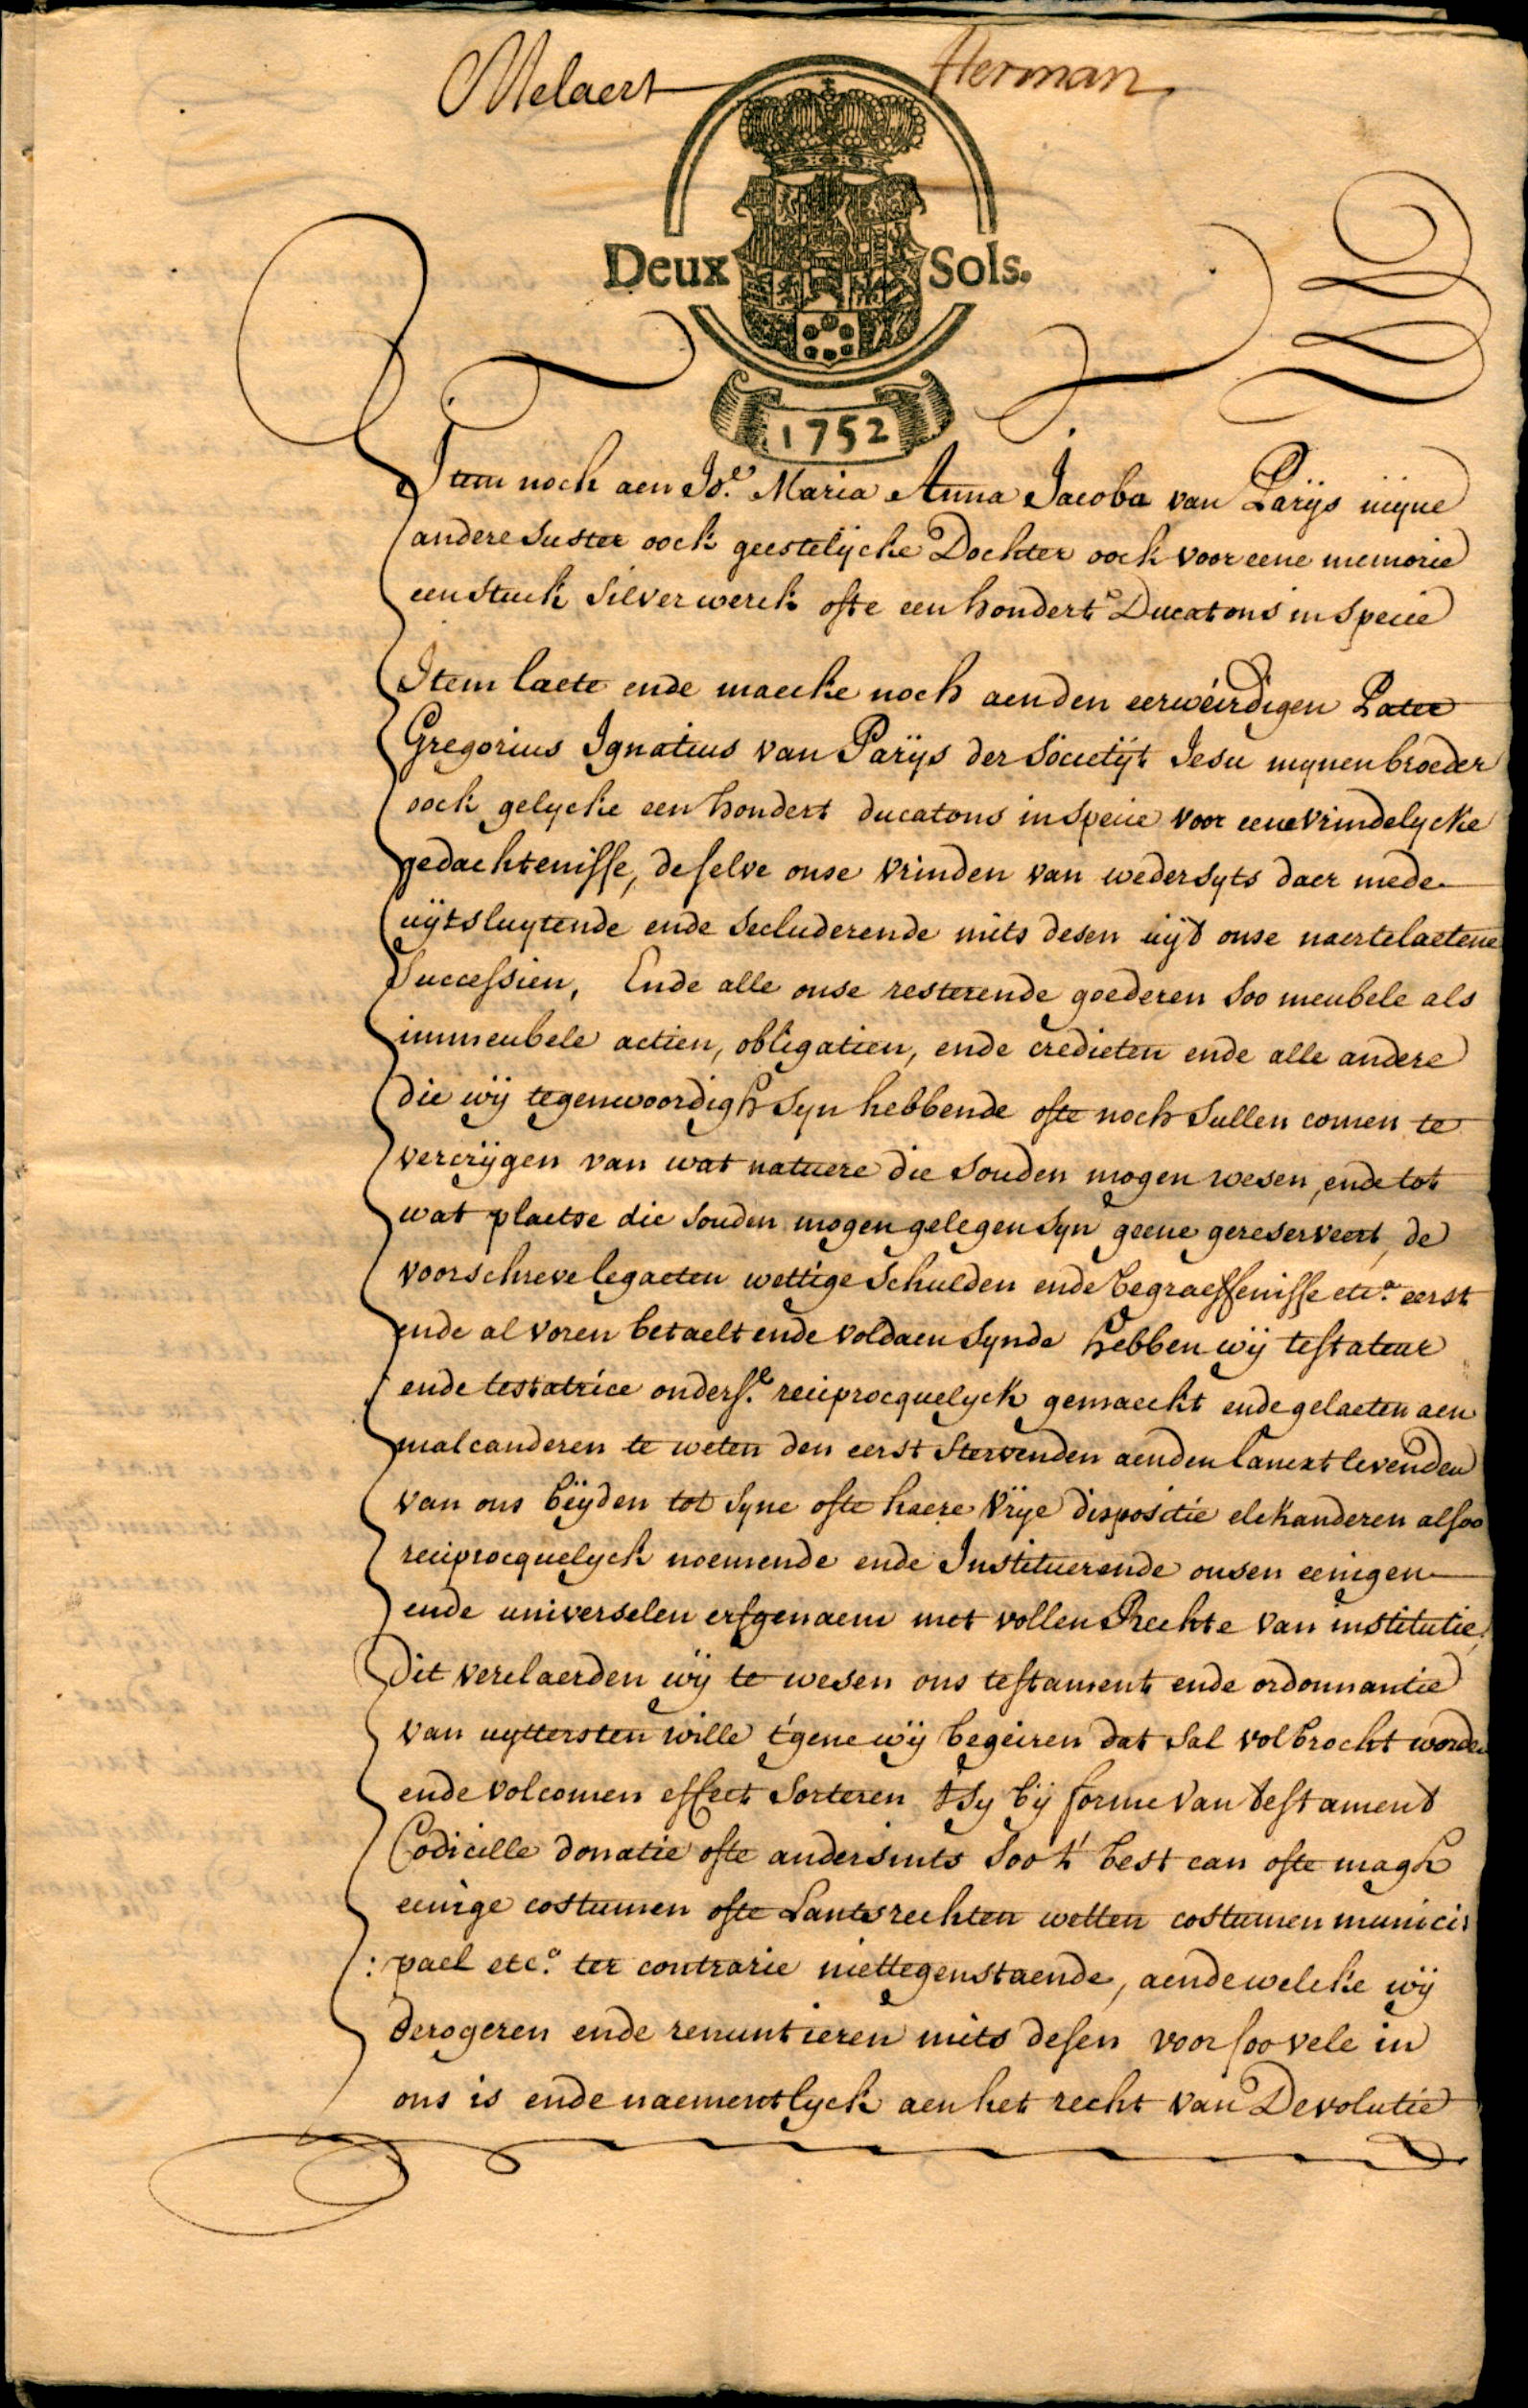 Melaert Herman
Deux Sols.
1752
Item noch aen Jo.e Maria Anna Jacoba van Parÿs mÿne
andere suster oock geestelÿcke Dochter oock voor eene memorie
een stuck silverwerck ofte een hondert Ducatons in specie
Item laete ende maecke noch aen den eerweirdigen Pater
Gregorius Ignatius van Parÿs der Societÿt Jesu mynen broeder
oock gelycke een hondert ducatons in specie voor eene vrindelycke
gedachtenisse, deselve onse vrinden van wedersyts daer mede
uÿtsluytende ende secluderende mits desen uÿt onse naertelaetene
Successien, Ende alle onse resterende goederen soo meubele als
immeubele actien, obligatien, ende credieten ende alle andere
die wÿ tegenwoordigh syn hebbende ofte noch sullen comen te
vercrÿgen van wat natuere die souden mogen wesen, ende tot
wat plaetse die souden mogen gelegen syn geene gereserveert, de
voorschreve legaeten wettige schulden ende begraeffenisse etc.a eerst
ende al voren betaelt ende voldaen synde hebben wÿ testateur
ende testatrice onders.e reciprocquelyck gemaeckt ende gelaeten aen
malcanderen te weten den eerst stervenden aenden lancxt levenden
van ons beÿden tot syne ofte haere vrÿe dispositie elckanderen alsoo
reciprocquelyck noemende ende Instituerende onsen eenigen
ende universelen erfgenaem met vollen Rechte van institutie,
Dit verclaerden wÿ te wesen ons testament ende ordonnantie
van uyttersten wille t'gene wÿ begeiren dat sal volbrocht worden
ende volcomen effect sorteren tsy bÿ forme van testament
Codicille donatie ofte andersints soo t' best can ofte magh
eenige costumen ofte Lantsrechten wetten costumen munici:
:pael etc.a ter contrarie niettegenstaende, aende welcke wÿ
derogeren ende renuntieren mits desen voor soo vele in
ons is ende naementlyck aen het recht van Devolutie